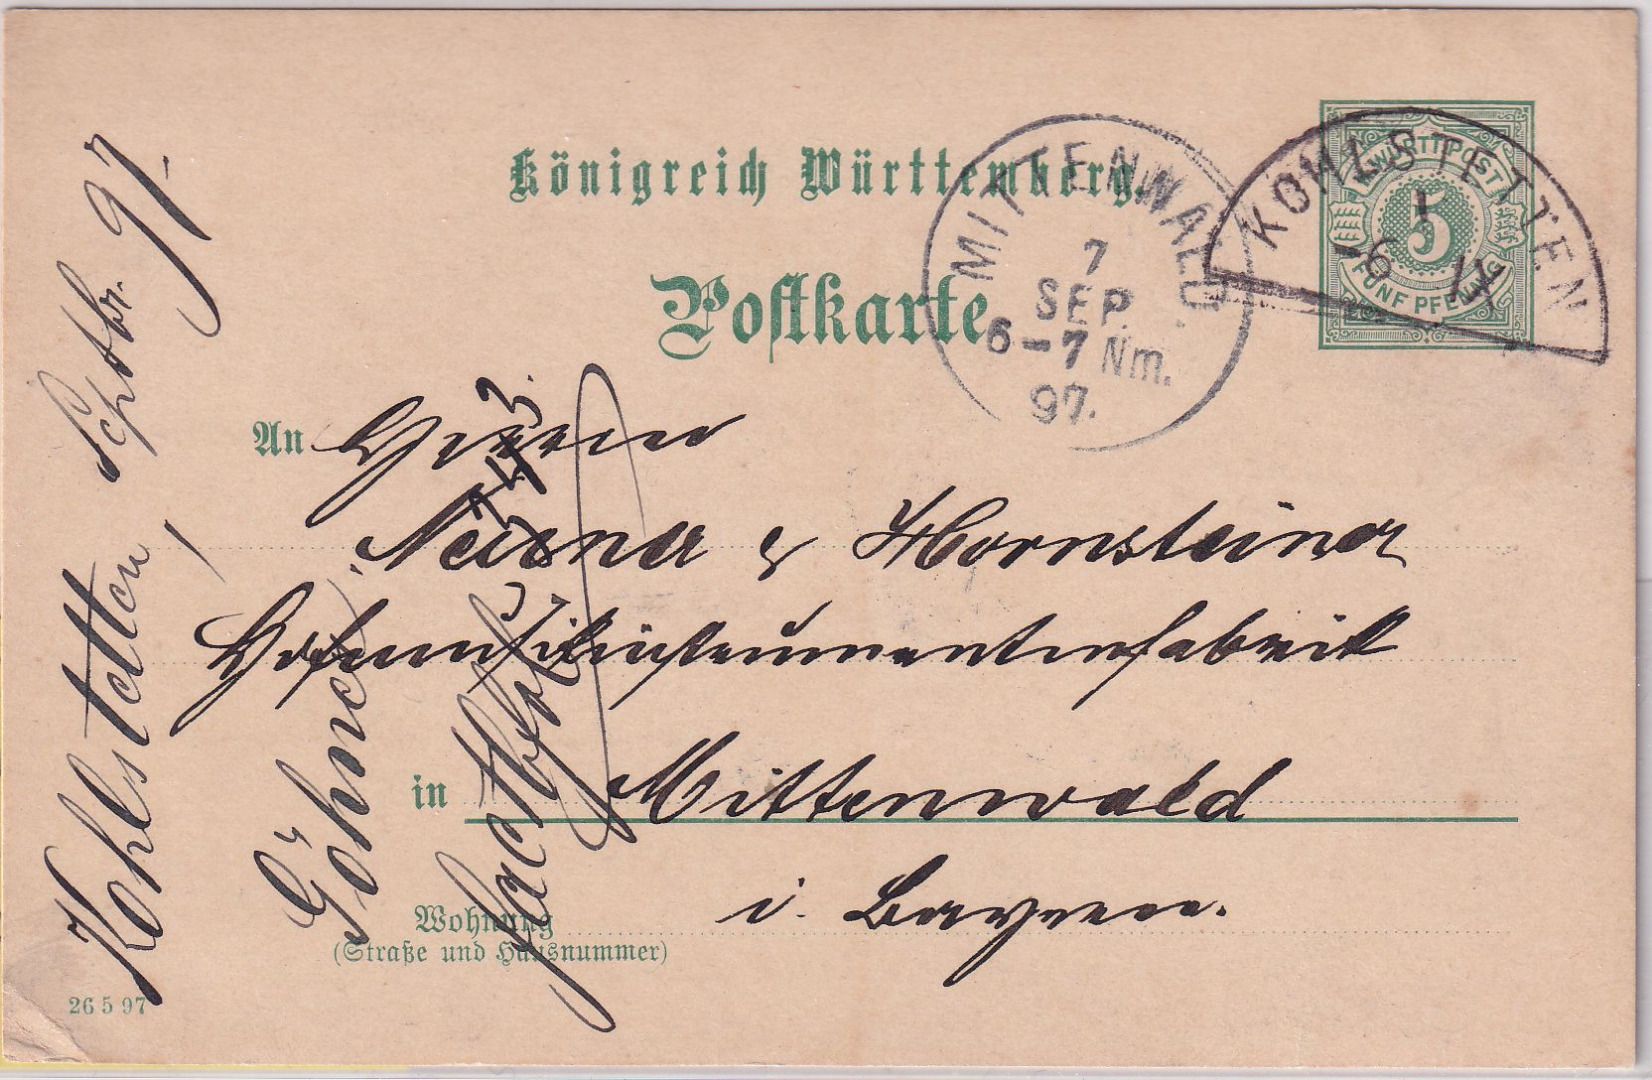 Königreich Württemberg.
Postkarte
WÜRTT. POST
5
FÜNF PFENNIG
KOHLSTETTEN
-6 IX
MITTENWALD
7
SEP.
6-7 Nm.
97.
An Herren
Neuner & Hornsteiner
Hofmusikinstrumentenfabrik
in Mittenwald
i. Bayern.
Wohnung
(Straße und Hausnummer)
26 5 97
Kohlstetten, Septbr. 97.